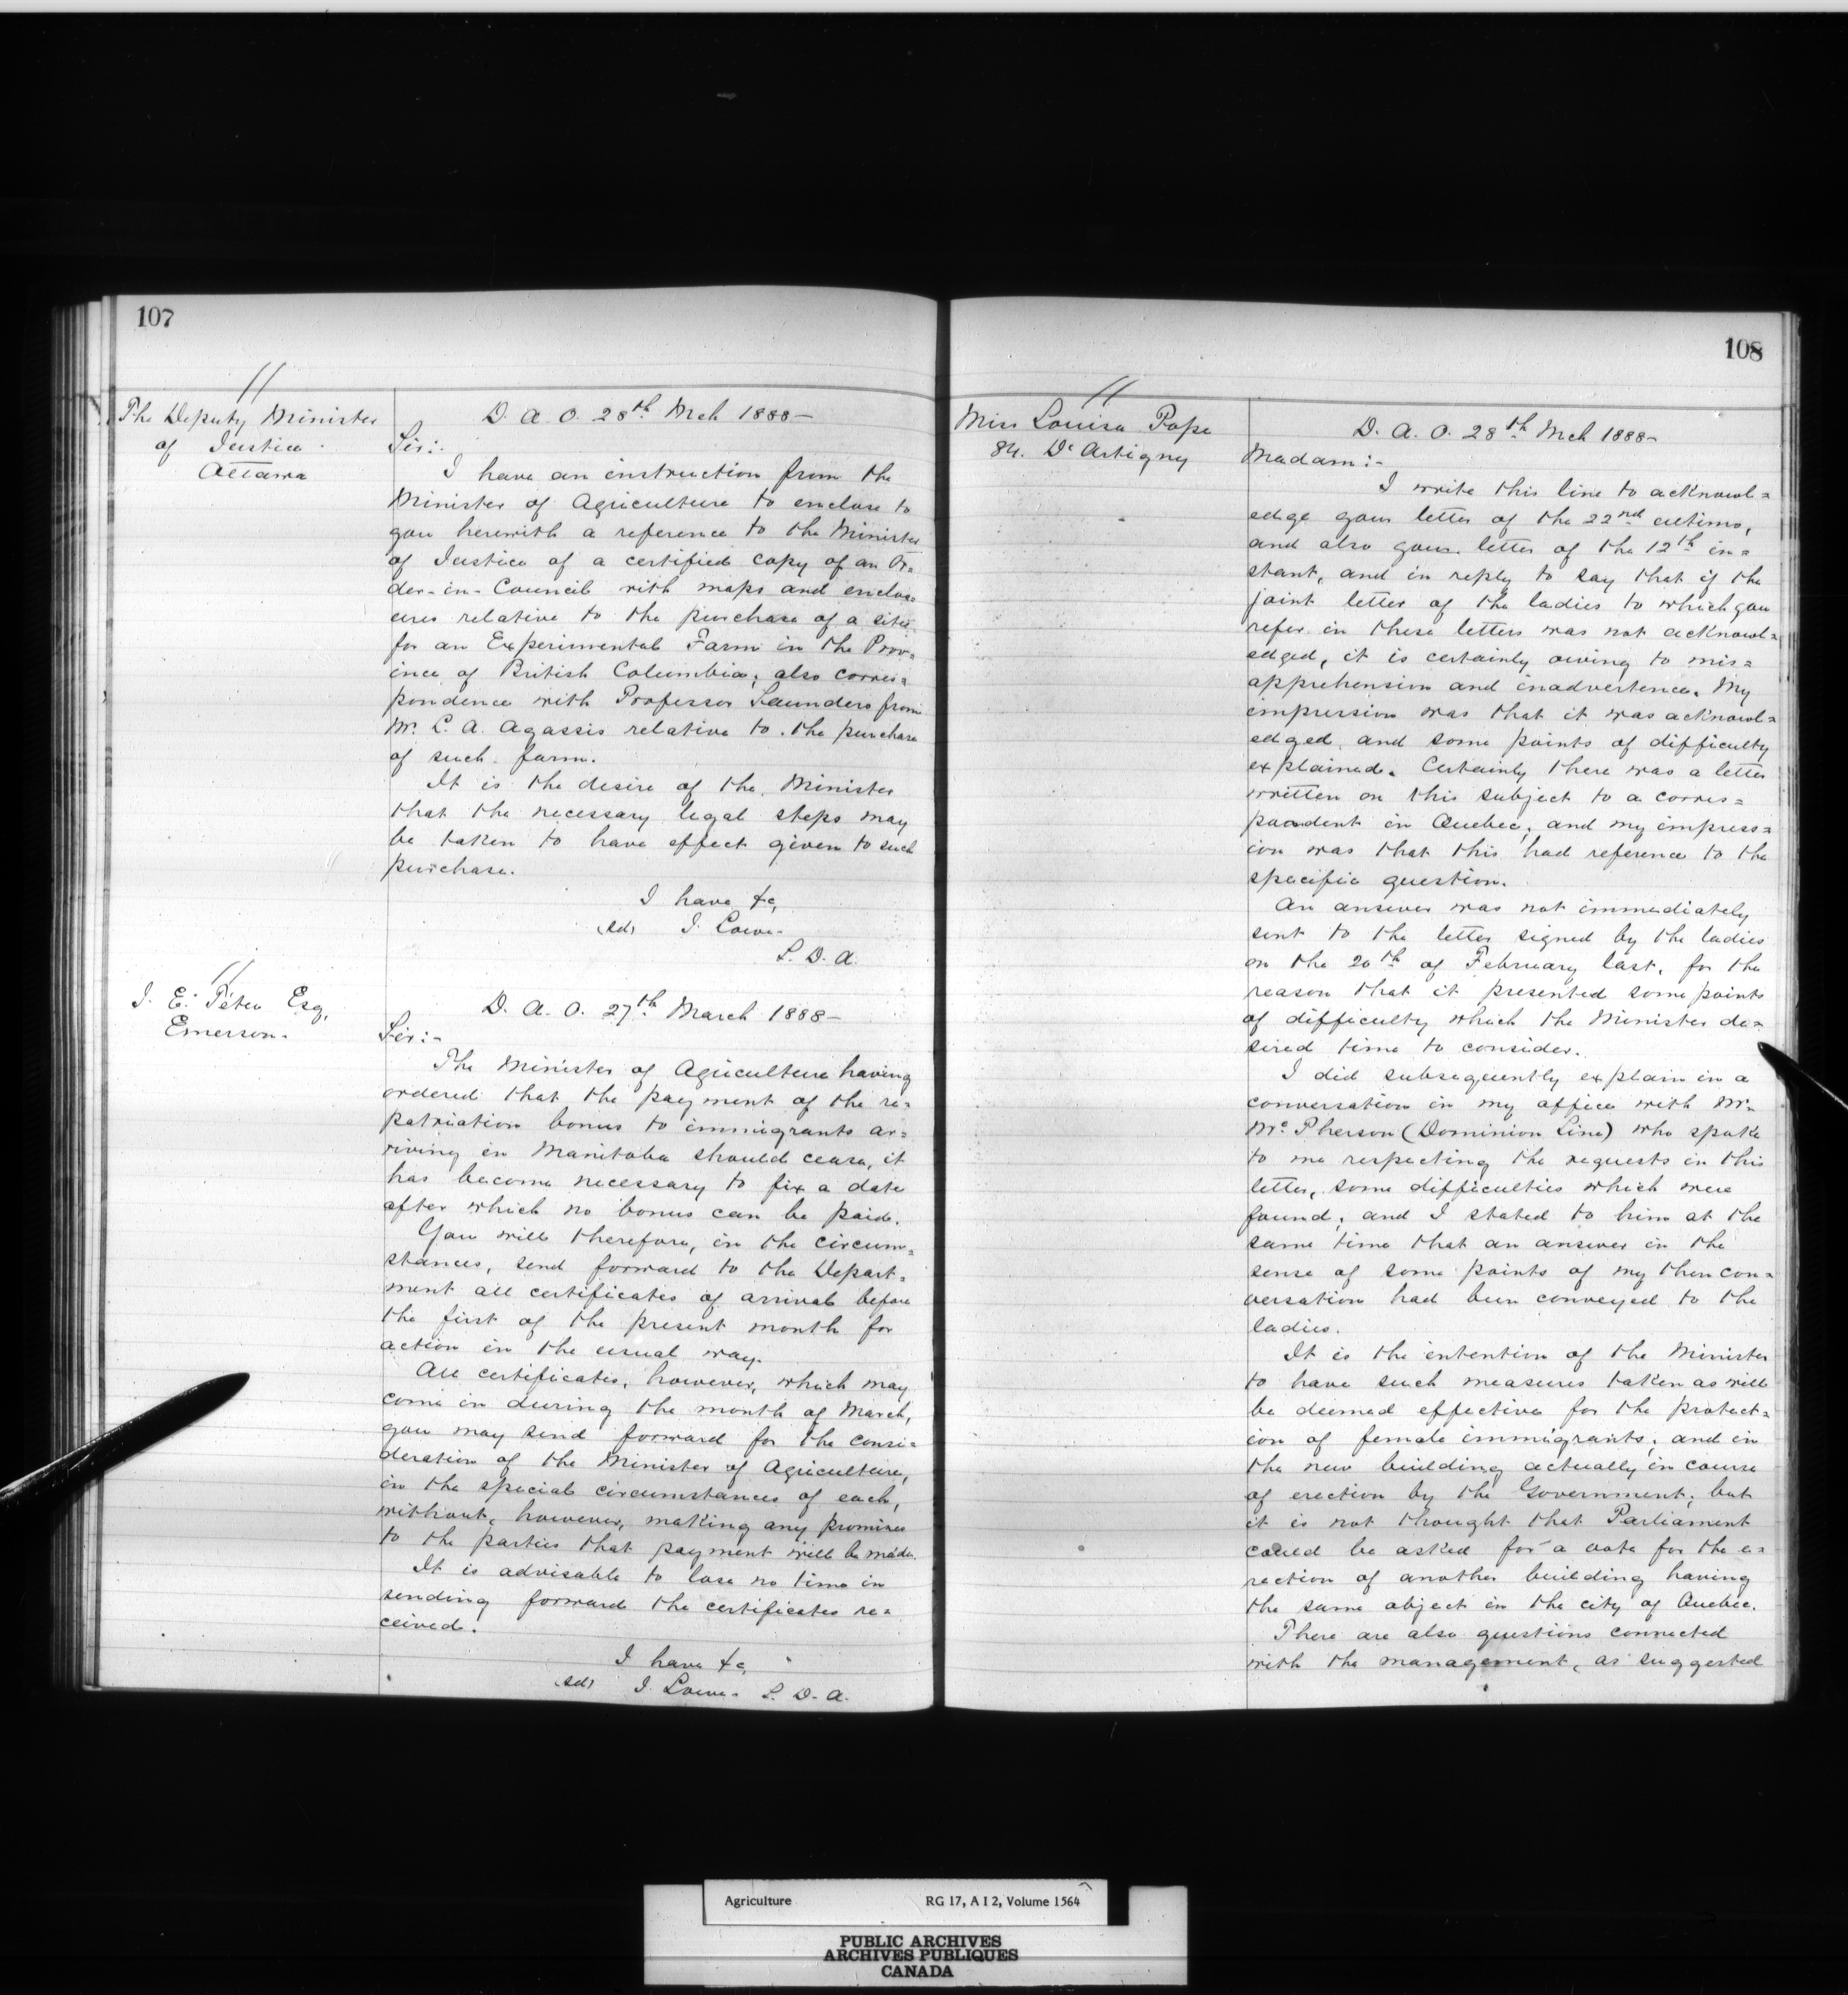 107
The Deputy Minister
of Justice
Ottawa
D. A. O. 28th Mch 1888-
Sir:-
I have an instruction from the
Minister of Agriculture to enclose to
you herewith a reference to the Minister
of Justice of a certified copy of an Or=
der-in-Council with maps and enclos=
ures relative to the purchase of a site
for an Experimental Farm in the Prov=
ince of British Columbia; also corres=
pondence with Professor Saunders from
Mr. L. A. Agassis relative to the purchase
of such farm.
It is the desire of the Minister
that the necessary legal steps may
be taken to have effect given to such
purchase.
I have &c,
(sd) J. Lowe.
S. D. A.
J. E. Têtu Esq,
Emerson.
D. A. O. 27th March 1888-
Sir:-
The Minister of Agriculture having
ordered that the payment of the re=
patriation bonus to immigrants ar=
riving in Manitoba should cease, it
has become necessary to fix a date
after which no bonus can be paid.
You will therefore, in the circum=
stances, send forward to the Depart=
ment all certificates of arrival before
the first of the present month for
action in the usual way.
All certificates, however, which may
come in during the month of March,
you may send forward for the consi=
deration of the Minister of Agriculture,
in the special circumstances of each,
without, however, making any promises
to the parties that payment will be made.
It is advisable to lose no time in
sending forward the certificates re=
ceived.
I have &c,
(sd) J. Lowe. S. D. A.
108
Miss Louisa Pope
84. D'Artigny
D. A. O. 28th Mch 1888-
Madam:-
I write this line to acknowl=
edge your letter of the 22nd ultimo,
and also your letter of the 12th in=
stant, and in reply to say that if the
joint letter of the ladies to which you
refer in these letters was not acknowl=
edged, it is certainly owing to mis=
apprehension and inadvertence. My
impression was that it was acknowl=
edged, and some points of difficulty
explained. Certainly there was a letter
written on this subject to a corres=
pondent in Quebec; and my impress=
ion was that this had reference to the
specific question.
An answer was not immediately
sent to the letter signed by the ladies
on the 20th of February last, for the
reason that it presented some points
of difficulty which the Minister de=
sired time to consider.
I did subsequently explain in a
conversation in my office with Mr.
McPherson (Dominion Line) who spoke
to me respecting the requests in this
letter, some difficulties which were
found; and I stated to him at the
same time that an answer in the
sense of some points of my then con=
versation had been conveyed to the
ladies.
It is the intention of the Minister
to have such measures taken as will
be deemed effective for the protect=
ion of female immigrants; and in
the new building actually in course
of erection by the Government; but
it is not thought that Parliament
could be asked for a vote for the e=
rection of another building having
the same object in the city of Quebec.
There are also questions connected
with the management, as suggested
Agriculture RG 17, A I 2, Volume 1564
PUBLIC ARCHIVES
ARCHIVES PUBLIQUES
CANADA